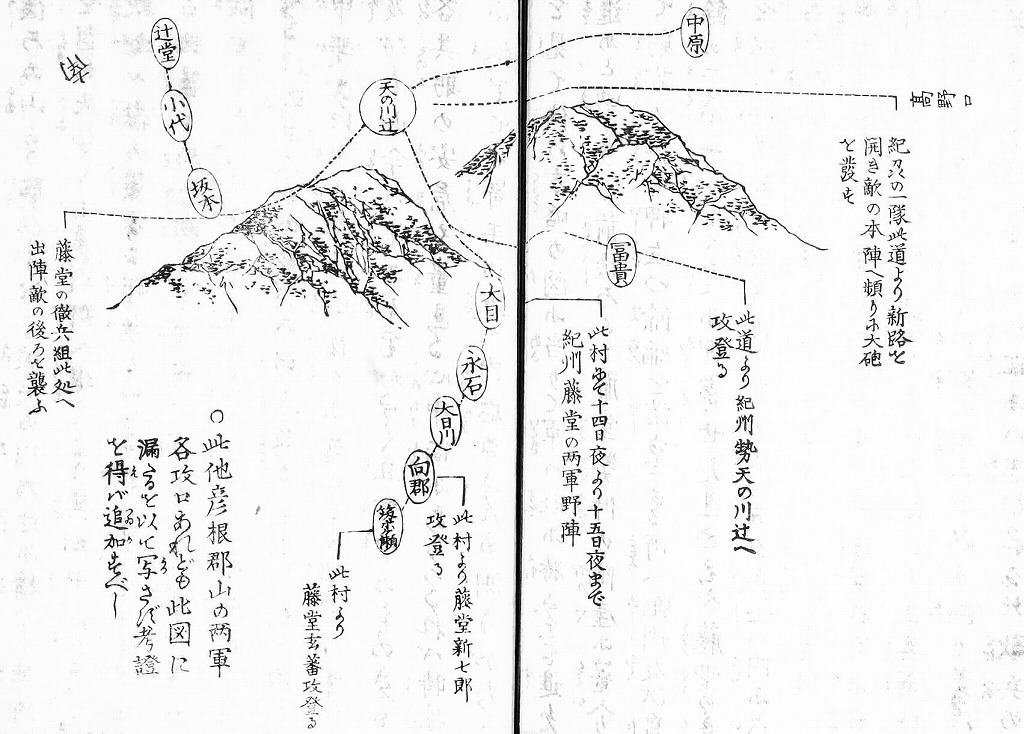 高野口
紀州の一隊此道より新路を
開き敵の本陣へ頻りに大砲
を発す
中原
此道より紀州勢天の川辻へ
攻登る
冨貴
此村にて十四日夜より十五日夜まで
紀州藤堂の両軍野陣
天の川辻
大日
永石
大日川
向郡
此村より藤堂新七郎
攻登る
此村より
藤堂玄蕃攻登る
辻堂
小代
坂本
藤堂の撤兵組此処へ
出陣敵の後ろを襲ふ
○此他彦根郡山の両軍
各攻口あれども此図に
漏るを以て写さず考證
を得ば追加すべし